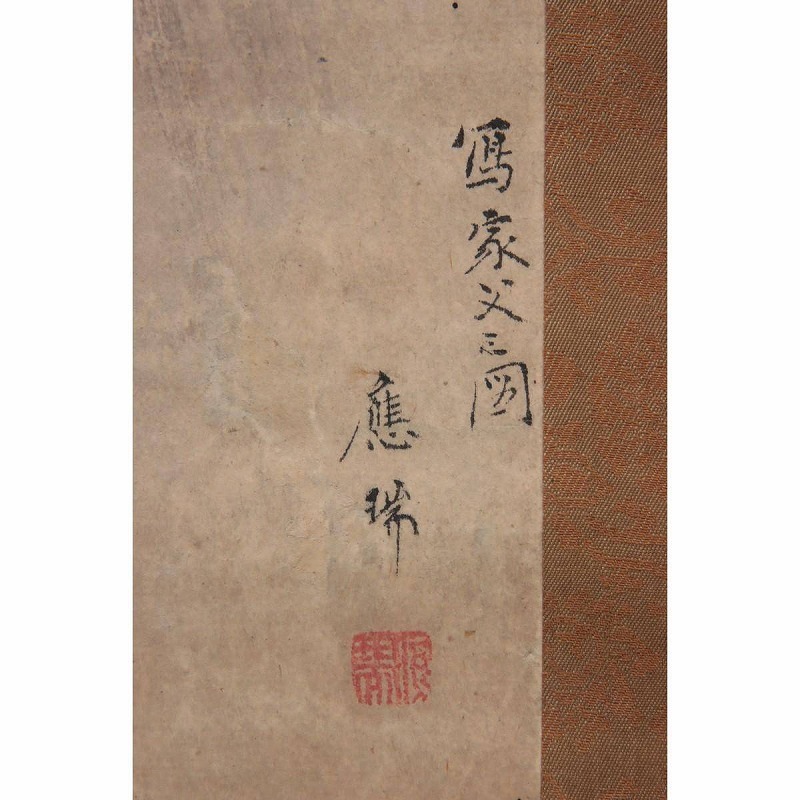 寫家父之圖
應瑞